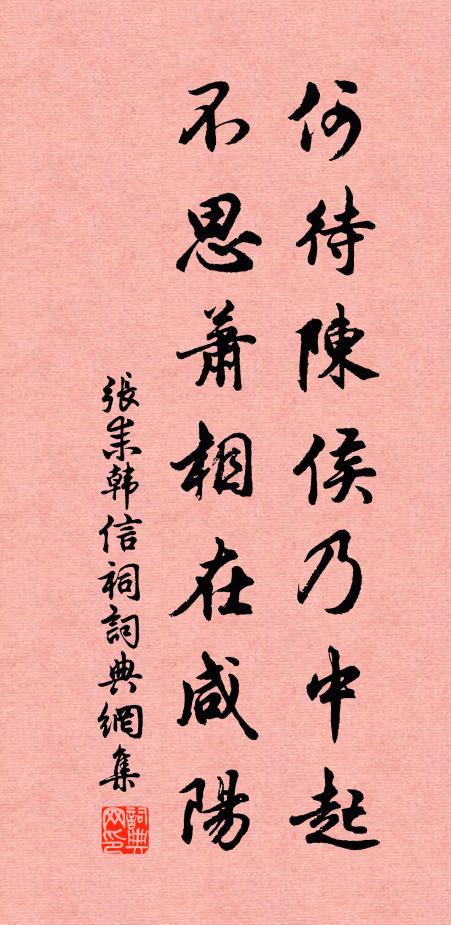 何待陳侯乃中起
不思蕭相在咸陽
張耒韓信祠詞典網集
詞典网印